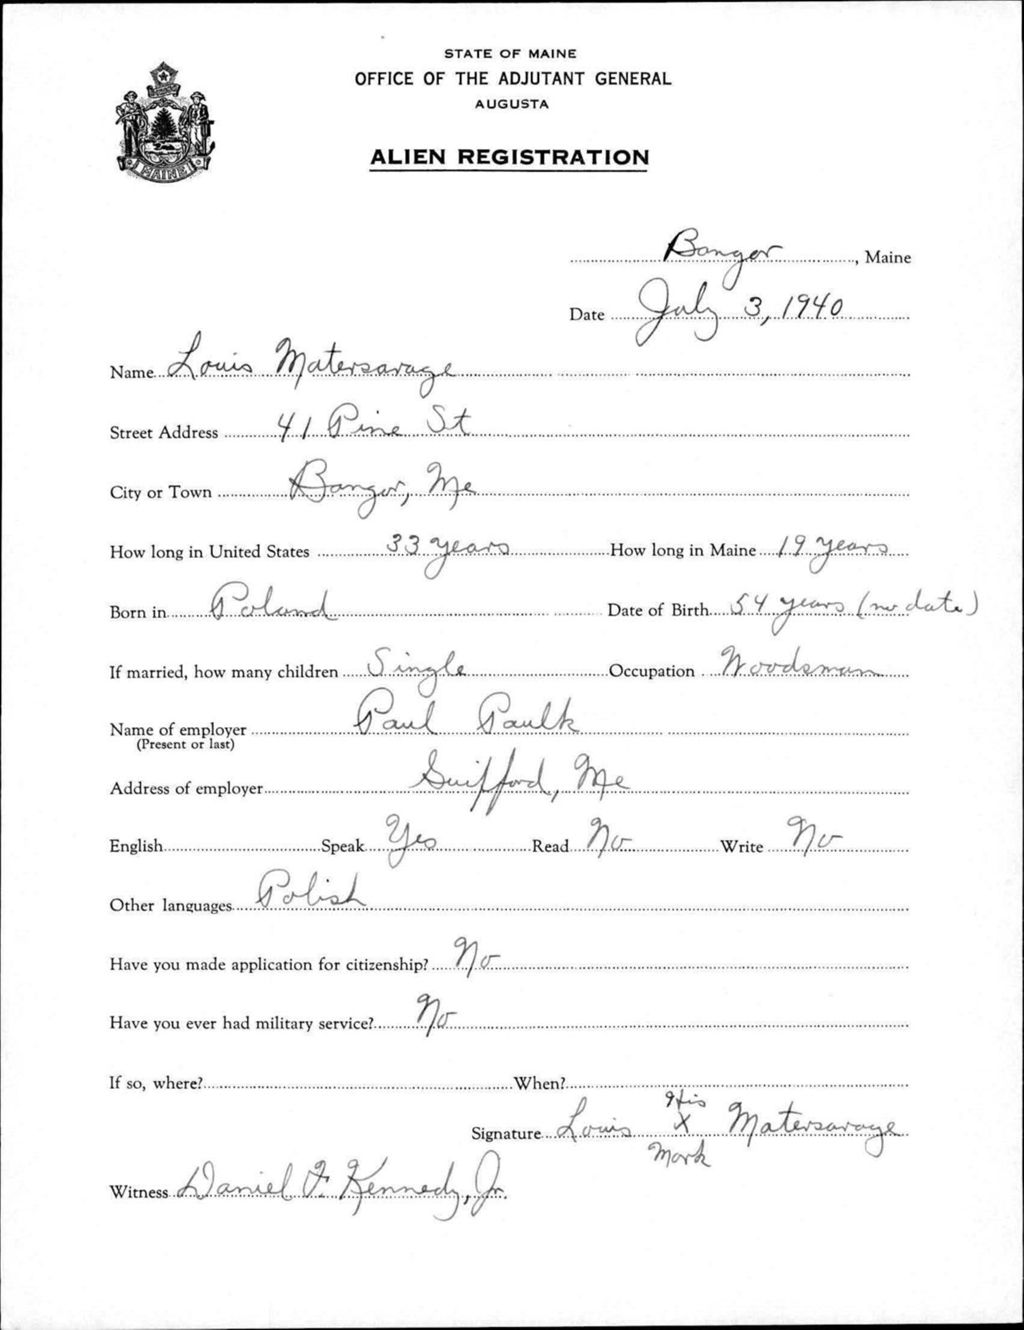 STATE OF MAINE
OFFICE OF THE ADJUTANT GENERAL
AUGUSTA
ALIEN REGISTRATION
MAINE
Bangor, Maine
Date July 3, 1940
Name Louis Matersavage
Street Address 41 Pine St
City or Town Bangor, Me
How long in United States 33 years How long in Maine 19 years
Born in Poland Date of Birth 54 years (no date)
If married, how many children Single Occupation Woodsman
Name of employer Paul Paulk
(Present or last)
Address of employer Guilford, Me
English Speak Yes Read No Write No
Other languages Polish
Have you made application for citizenship? No
Have you ever had military service? No
If so, where? When?
His
Signature Louis X Matersavage
Mark
Witness Daniel F. Kennedy, Jr.